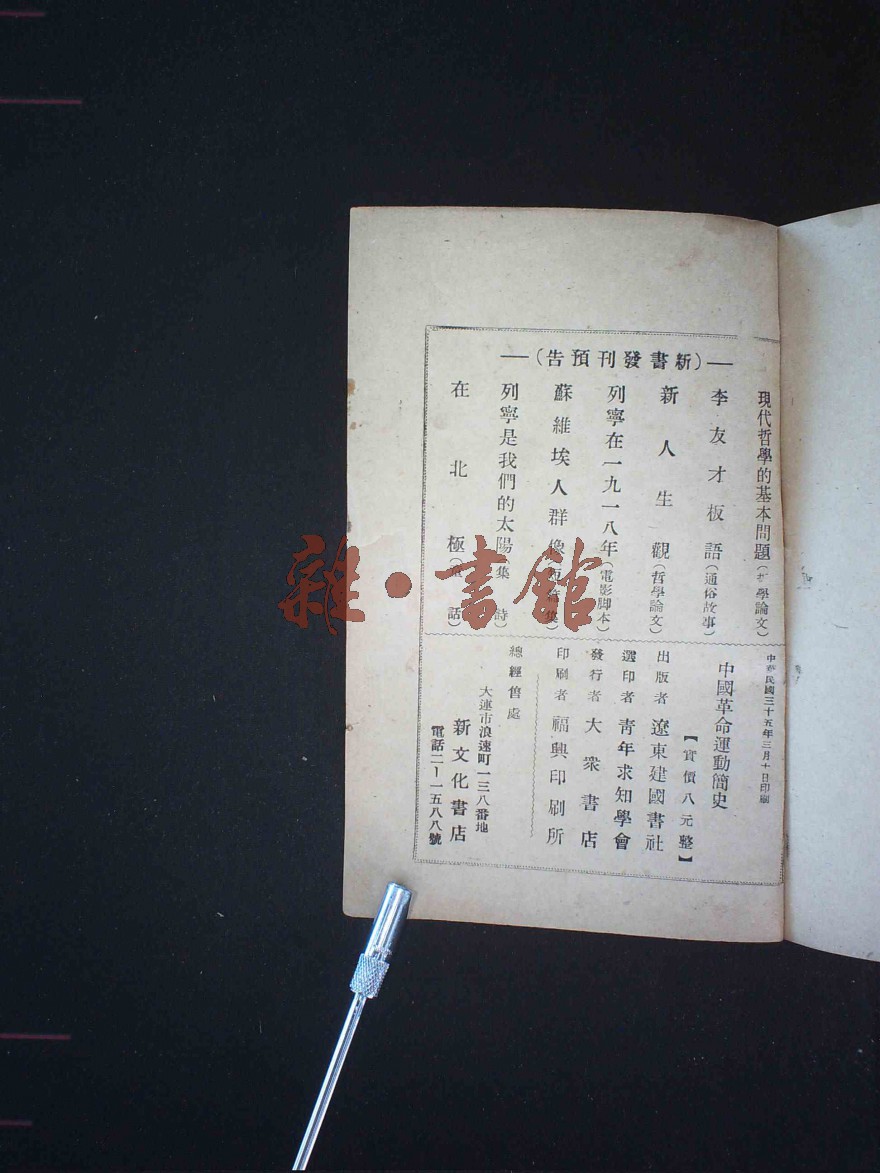 —(新書發刊預告)—
現代哲學的基本問題(哲學論文)
李友才板語(通俗故事)
新人生觀(哲學論文)
列寧在一九一八年(電影脚本)
蘇維埃人群像
列寧是我們的太陽(詩集)
在北極(童話)
中華民國三十五年三月十日印刷
中國革命運動簡史
【實價八元整】
出版者 遼東建國書社
選印者 青年求知學會
發行者 大衆書店
印刷者 福興印刷所
總經售處
大連市浪速町一三八番地
新文化書店
電話二—一五八八號
雜·書館